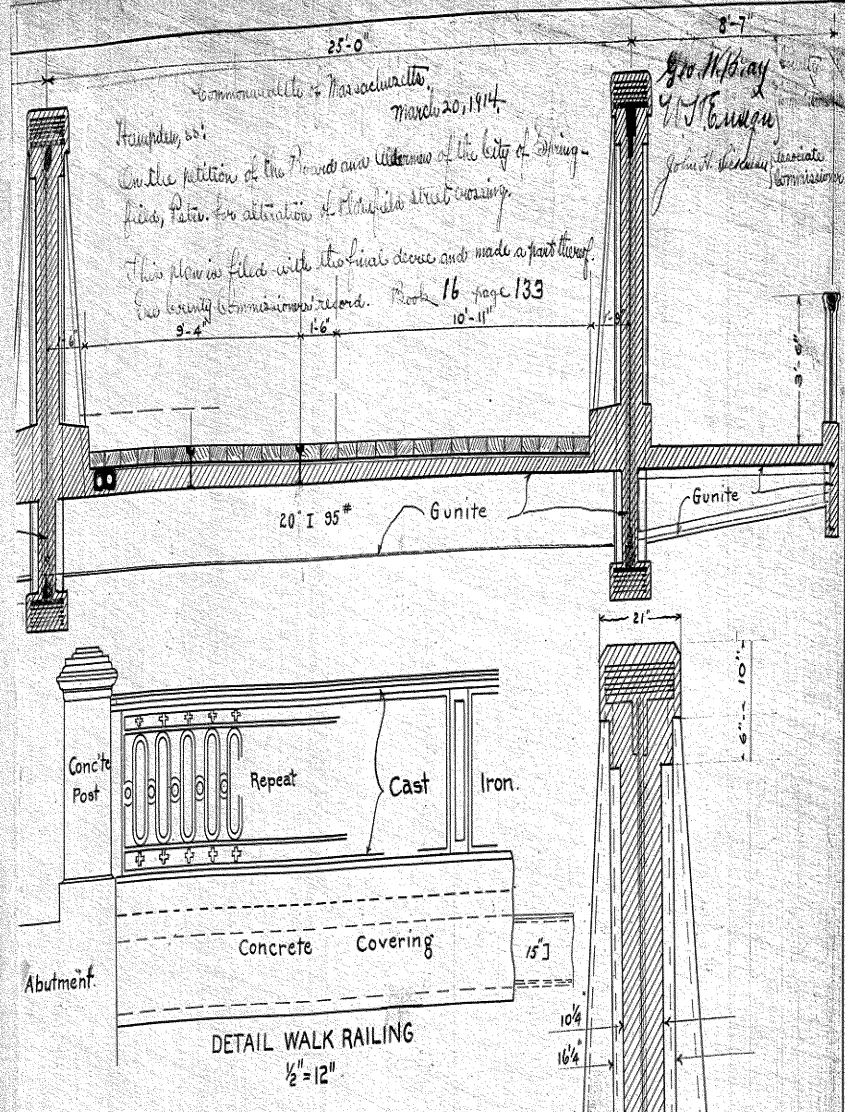 25'-0"
8'-7"
Commonwealth of Massachusetts.
March 20, 1914.
Hampden, ss:
On the petition of the Board and Aldermen of the City of Spring-
field, Petrs. for alteration of Plainfield street crossing.
This plan is filed with the final decree and made a part thereof.
See County Commissioners' record. Book 16 page 133
Geo. W. Bray
County
John H.
Associate
Commissioner
9'-4"
1'-6"
10'-11"
3'-6"
20" I 95#
Gunite
Gunite
21"
10"
Conc'te
Post
Repeat
Cast
Iron.
Concrete Covering
15"]
Abutment.
10¼"
16¼"
DETAIL WALK RAILING
½"=12"